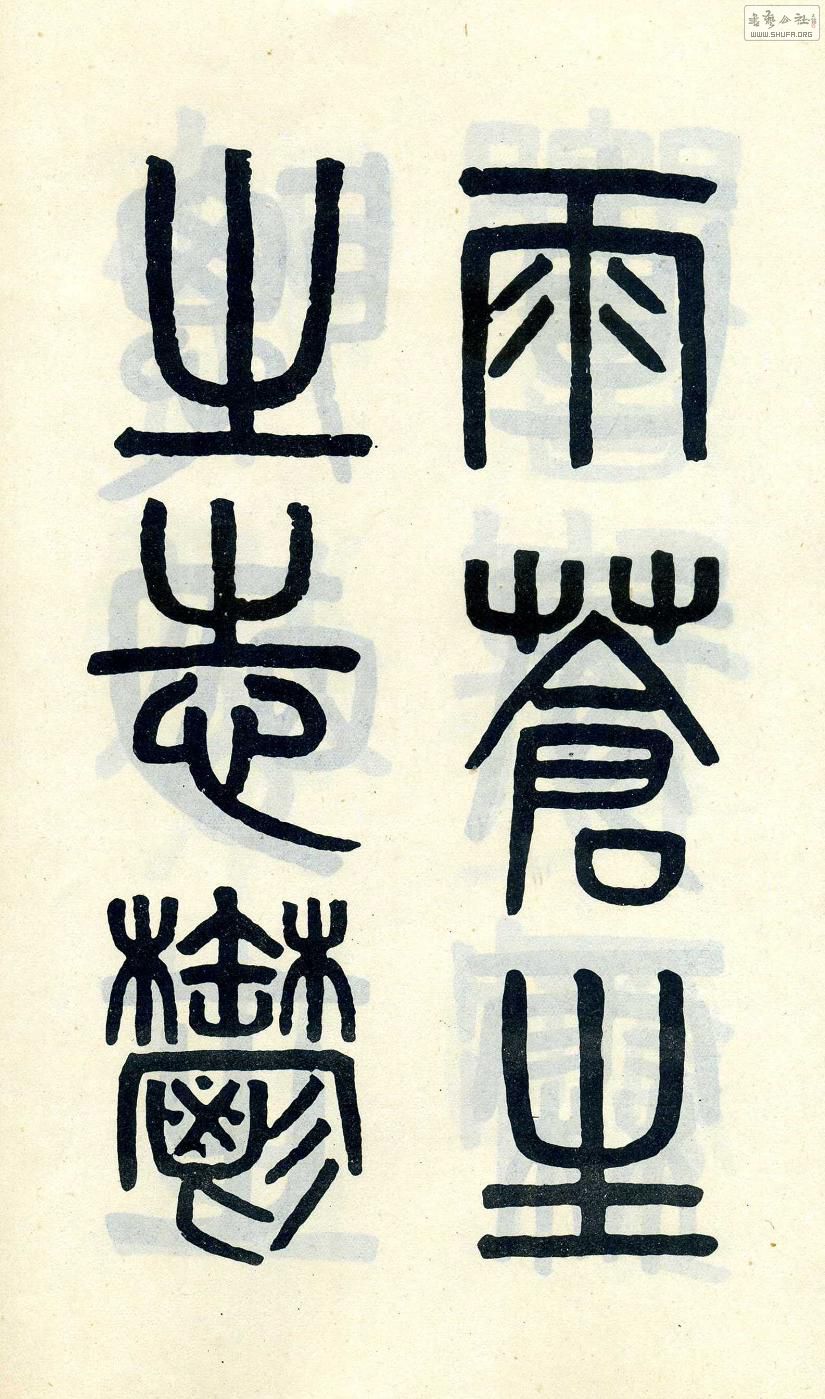 雨蒼生
之志鬱
書藝公社
WWW.SHUFA.ORG